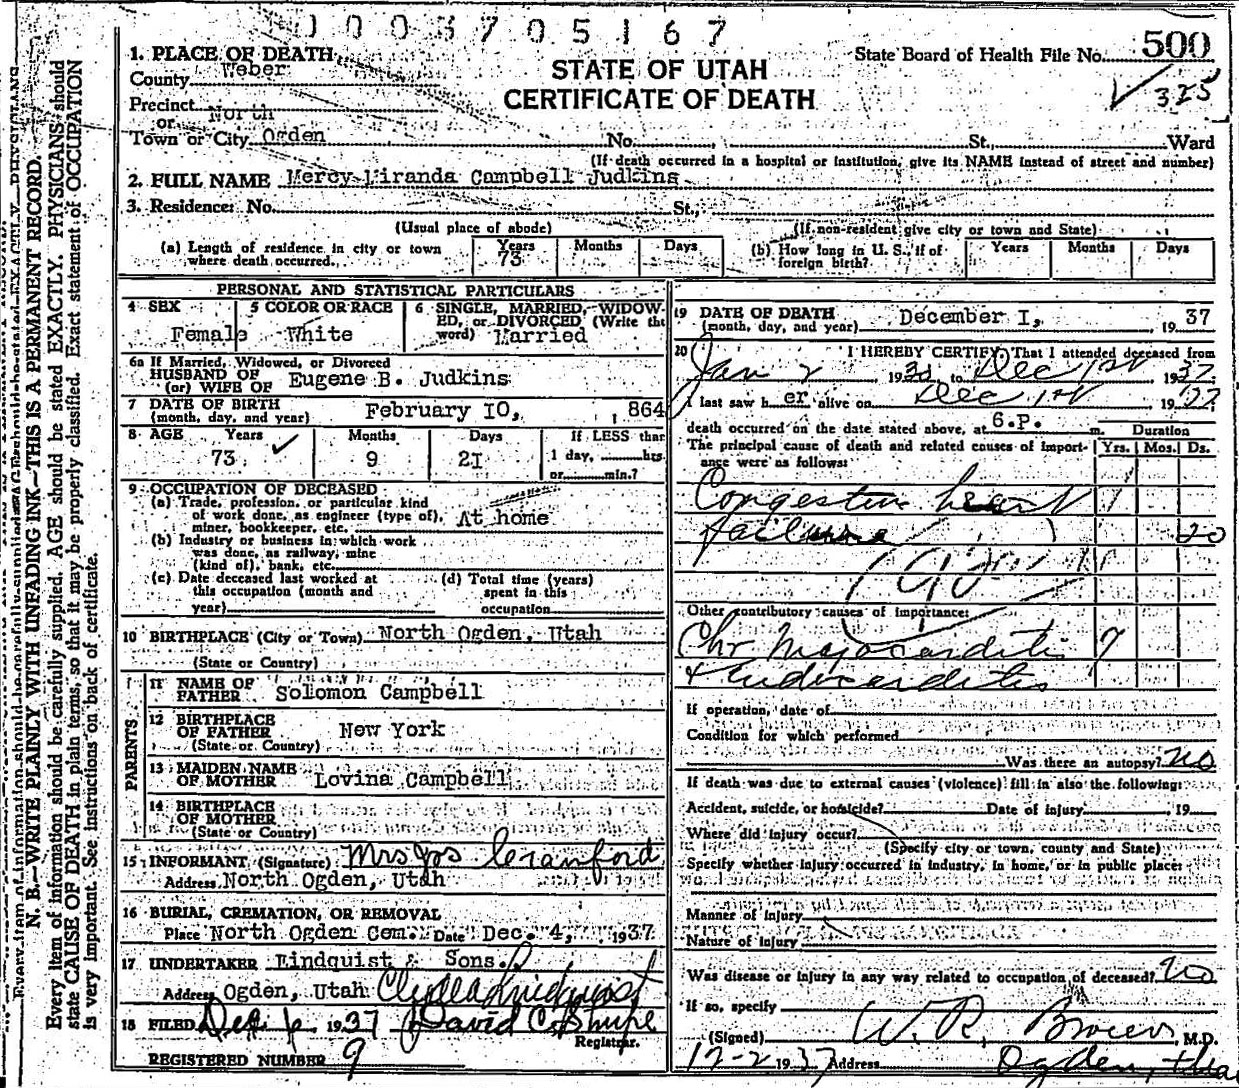 1003705167
1. PLACE OF DEATH
State Board of Health File No. 500
County Weber
STATE OF UTAH
325
Precinct
CERTIFICATE OF DEATH
or North
Town or City Ogden No. St., Ward
(If death occurred in a hospital or institution, give its NAME instead of street and number)
2. FULL NAME Mercy Miranda Campbell Judkins
3. Residence: No. St.,
(Usual place of abode) (If non-resident give city or town and State)
(a) Length of residence in city or town where death occurred. Years 73 Months Days (b) How long in U. S., if of foreign birth? Years Months Days
PERSONAL AND STATISTICAL PARTICULARS
4 SEX Female 5 COLOR OR RACE White 6 SINGLE, MARRIED, WIDOWED, or DIVORCED (Write the word) Married
6a If Married, Widowed, or Divorced
HUSBAND OF
(or) WIFE OF Eugene B. Judkins
7 DATE OF BIRTH
(month, day, and year) February I0, , 864
8 AGE Years 73 Months 9 Days 2I If LESS than 1 day, hrs. or min.?
9 OCCUPATION OF DECEASED
(a) Trade, profession, or particular kind
of work done, as engineer (type of), At home
miner, bookkeeper, etc.
(b) Industry or business in which work
was done, as railway, mine
(kind of), bank, etc.
(c) Date deceased last worked at this occupation (month and year)
(d) Total time (years) spent in this occupation
10 BIRTHPLACE (City or Town) North Ogden, Utah
(State or Country)
PARENTS
11 NAME OF FATHER Solomon Campbell
12 BIRTHPLACE OF FATHER New York
(State or Country)
13 MAIDEN NAME OF MOTHER Lovina Campbell
14 BIRTHPLACE OF MOTHER
(State or Country)
15 INFORMANT (Signature) Mrs Jos Cranford
Address North Ogden, Utah
16 BURIAL, CREMATION, OR REMOVAL
Place North Ogden Cem. Date Dec. 4, 1937
17 UNDERTAKER Lindquist & Sons.
Address Ogden, Utah Clyde Lindquist
18 FILED Dec 6 1937 David C. Shupe
Registrar.
REGISTERED NUMBER 9
19 DATE OF DEATH
(month, day, and year) December I, 19 37
20 I HEREBY CERTIFY, That I attended deceased from
Jan 2 19 to Dec 1st 1937
I last saw her alive on Dec 1st 1937
death occurred on the date stated above, at 6.P. m. Duration
The principal cause of death and related causes of importance were as follows: Yrs. Mos. Ds.
Congestive heart
failure 20
Other contributory causes of importance:
Chr Myocarditis 7
& Endocarditis
If operation, date of
Condition for which performed
Was there an autopsy? no
If death was due to external causes (violence) fill in also the following:
Accident, suicide, or homicide? Date of injury , 19
Where did injury occur?
(Specify city or town, county and State)
Specify whether injury occurred in industry, in home, or in public place:
Manner of Injury
Nature of Injury
Was disease or injury in any way related to occupation of deceased? no
If so, specify
(Signed) W. R. Brown, M.D.
12-2 1937 Address Ogden, Utah
N. B.—WRITE PLAINLY WITH UNFADING INK—THIS IS A PERMANENT RECORD.
Every item of information should be carefully supplied. AGE should be stated EXACTLY. PHYSICIANS should
state CAUSE OF DEATH in plain terms, so that it may be properly classified. Exact statement of OCCUPATION
is very important. See instructions on back of certificate.